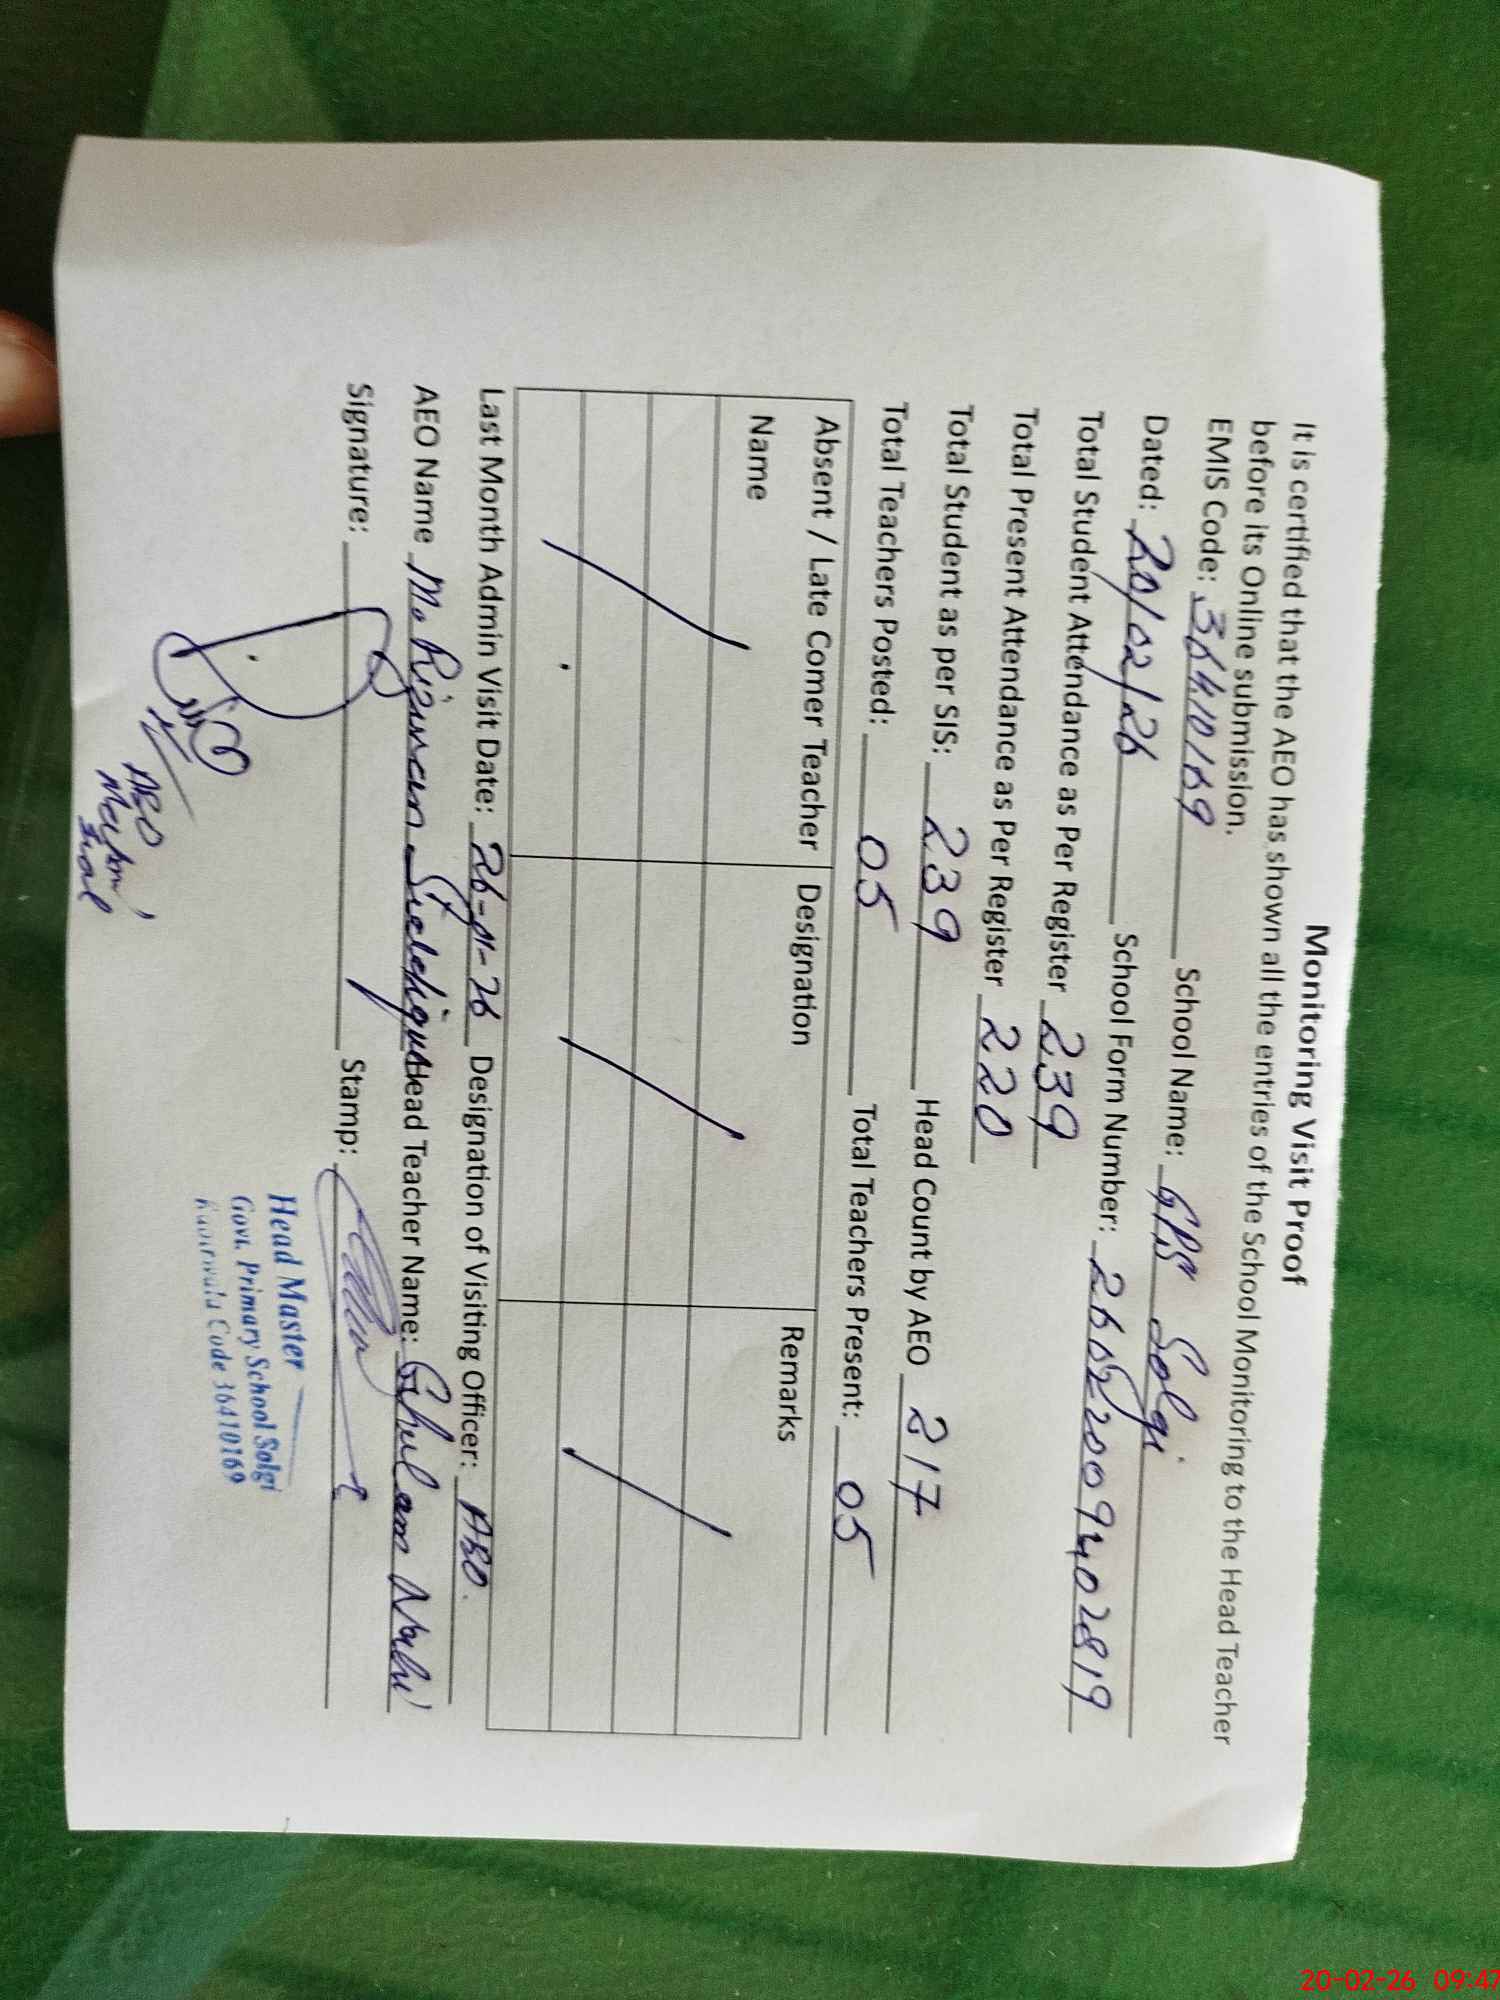 Monitoring Visit Proof
It is certified that the AEO has shown all the entries of the School Monitoring to the Head Teacher
before its Online submission.
EMIS Code: 36410169 School Name: GPS Solgi
Dated: 20/02/26 School Form Number: 26022009402819
Total Student Attendance as Per Register 239
Total Present Attendance as Per Register 220
Total Student as per SIS: 239 Head Count by AEO 217
Total Teachers Posted: 05 Total Teachers Present: 05
Absent / Late Comer Teacher Designation Remarks
Name
Last Month Admin Visit Date: 26-01-26 Designation of Visiting Officer: AEO.
AEO Name M. Rizwan Siddique Head Teacher Name: Ghulam Nabi
Signature: Stamp:
AEO
Head Master
Govt. Primary School Solgi
Code 36410169
20-02-26 09:47